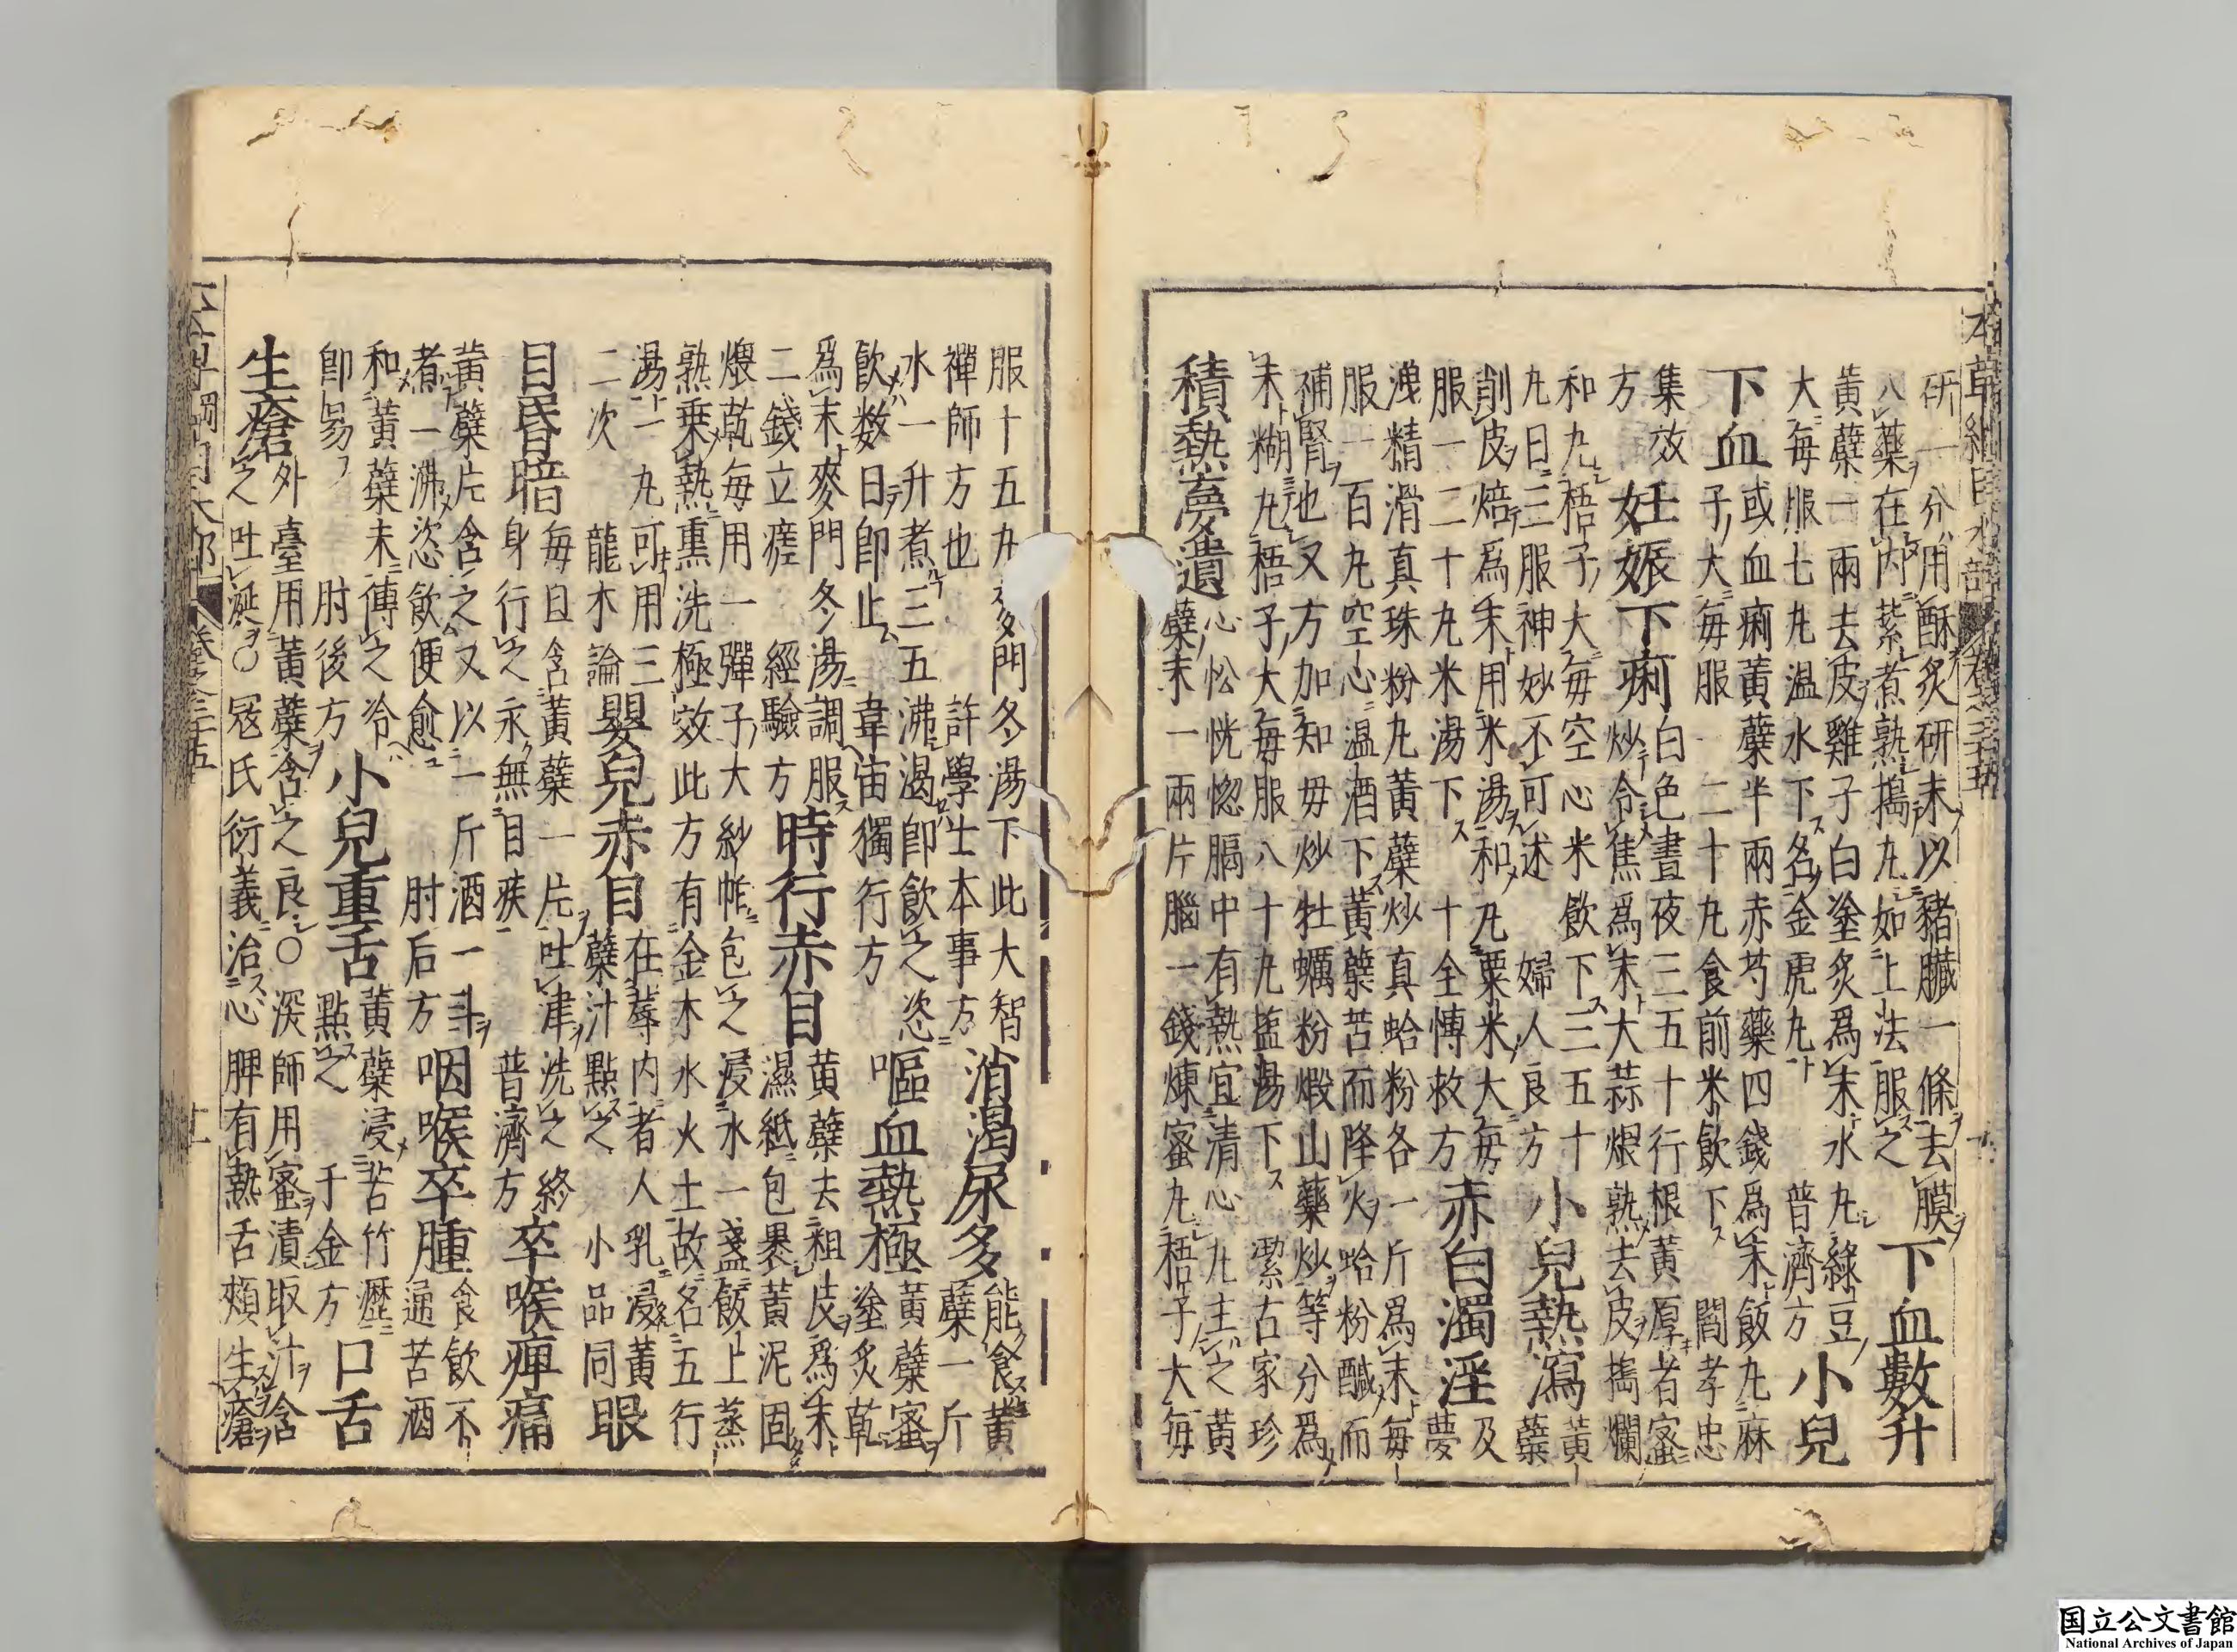 本草綱目木部 卷之三十五
研一分用酥炙研末以豬臟一條去膜
入藥在内紮煮熟搗丸如上法服之
下血數升
黄蘗一兩去皮雞子白塗炙爲末水丸綠豆
大每服七丸温水下名金虎丸 普濟方
小兒
下血
或血痢黄蘗半兩赤芍藥四錢爲末飯丸麻
子大每服一二十丸食前米飲下 閻孝忠
集效
方
妊娠下痢
白色晝夜三五十行根黄厚者蜜
炒令焦爲末大蒜煨熟去皮搗爛
和丸梧子大每空心米飲下三五十
丸日三服神妙不可述 婦人良方
小兒熱瀉
黄
蘗
削皮焙爲末用米湯和丸粟米大每
服一二十丸米湯下 十全博救方
赤白濁淫
及
夢
洩精滑真珠粉丸黄蘗炒真蛤粉各一斤爲末每
服一百丸空心温酒下黄蘗苦而降火蛤粉鹹而
補腎也又方加知毋炒牡蠣粉煅山藥炒等分爲
末糊丸梧子大每服八十丸盬湯下 潔古家珍
積熱夢遺
心忪恍惚膈中有熱宜清心丸主之黄
蘗末一兩片腦一錢煉蜜丸梧子大每
服十五丸麥門冬湯下此大智
禪師方也 許學士本事方
消渴尿多
能食黄
蘗一斤
水一升煮三五沸渴即飲之恣
飲数日即止 韋宙獨行方
嘔血熱極
黄蘗蜜
塗炙乾
爲末麥門冬湯調服
二錢立瘥 經驗方
時行赤目
黄蘗去粗皮爲末
濕紙包裹黄泥固
煨乾每用一彈子大紗帕包之浸水一盞飯上蒸
熟乗熱熏洗極效此方有金木水火土故名五行
湯一丸可用三
二次 龍木論
嬰兒赤目
在蓐内者人乳浸黄
蘗汁點之 小品同
眼
目昏暗
每旦含黄蘗一片吐津洗之終
身行之永無目疾 普濟方
卒喉痺痛
黄蘗片含之又以一斤酒一斗
煮一沸恣飲便愈 肘后方
咽喉卒腫
食飲不
通苦酒
和黄蘗末傅之冷
即易 肘後方
小兒重舌
黄蘗浸苦竹瀝
點之 千金方
口舌
生瘡
外臺用黄蘗含之良○深師用蜜漬取汁含
之吐涎○冦氏衍義治心脾有熱舌頰生瘡
国立公文書館
National Archives of Japan